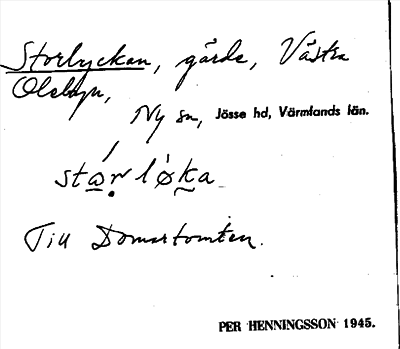 Storlyckan, gårds, Västra
Olsbyn,
Ny sn, Jösse hd, Värmlands län.
stạ̊́r lø̀ka
Till Domartomten.
PER HENNINGSSON 1945.